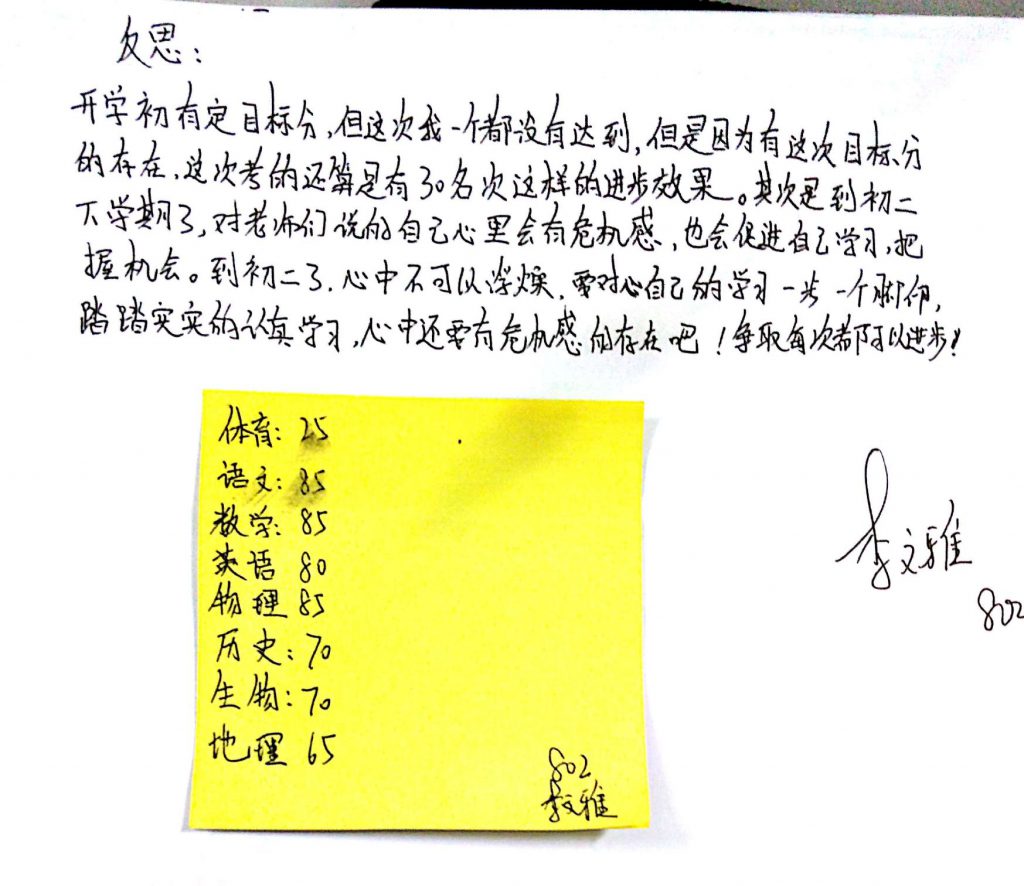 反思：
开学初有定目标分，但这次我一个都没有达到，但是因为有这次目标分
的存在，这次考的还算是有30名次这样的进步效果。其次是到初二
下学期了，对老师们说的自己心里会有危机感，也会促进自己学习，把
握机会。到初二了，心中不可以浮燥，要对心自己的学习一步一个脚印，
踏踏实实的认真学习，心中还要有危机感的存在吧！争取每次都可以进步！
体育：25
语文：85
数学：85
英语 80
物理 85
历史：70
生物：70
地理 65
802
李文雅
李文雅
802